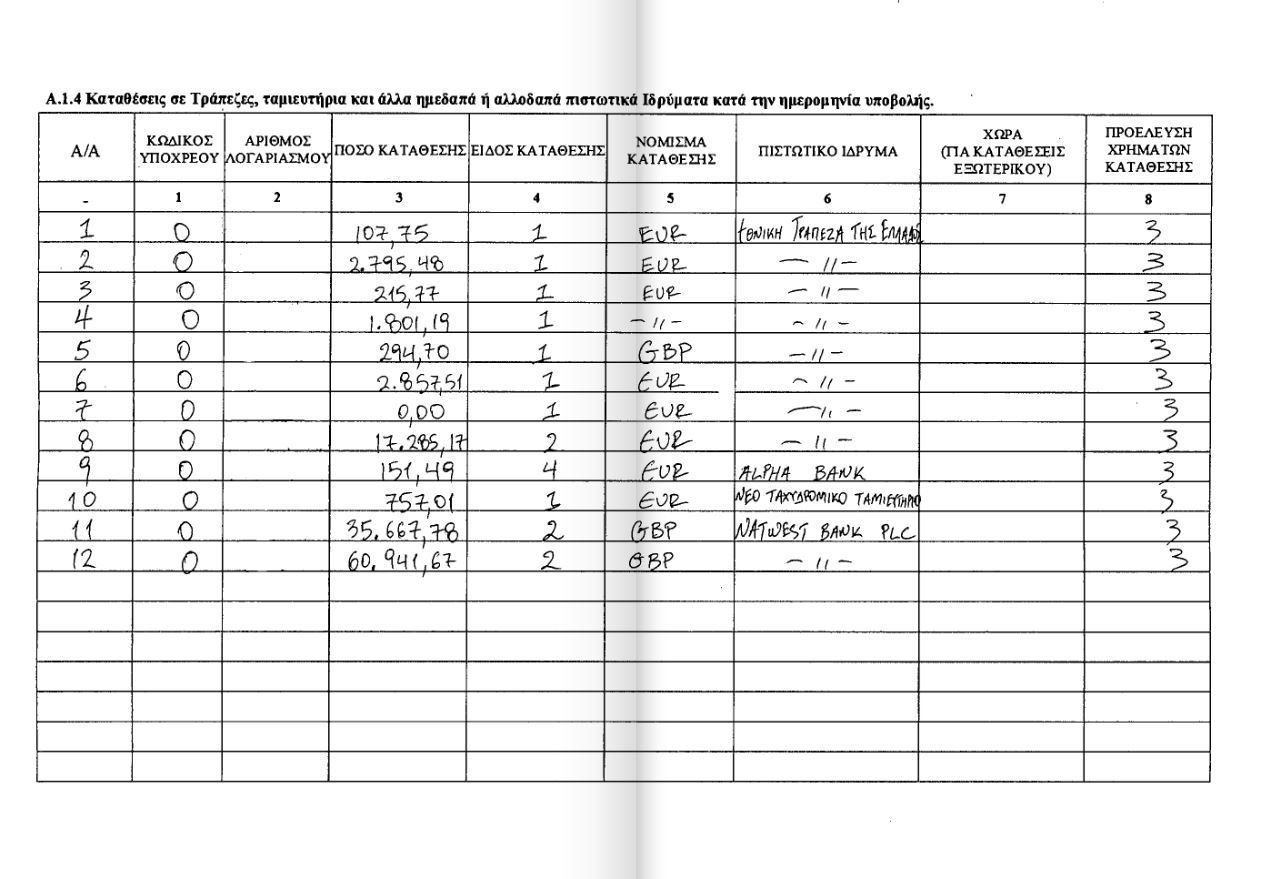 Α.1.4 Καταθέσεις σε Τράπεζες, ταμιευτήρια και άλλα ημεδαπά ή αλλοδαπά πιστωτικά Ιδρύματα κατά την ημερομηνία υποβολής.
Α/Α ΚΩΔΙΚΟΣ ΥΠΟΧΡΕΟΥ ΑΡΙΘΜΟΣ ΛΟΓΑΡΙΑΣΜΟΥ ΠΟΣΟ ΚΑΤΑΘΕΣΗΣ ΕΙΔΟΣ ΚΑΤΑΘΕΣΗΣ ΝΟΜΙΣΜΑ ΚΑΤΑΘΕΣΗΣ ΠΙΣΤΩΤΙΚΟ ΙΔΡΥΜΑ ΧΩΡΑ (ΓΙΑ ΚΑΤΑΘΕΣΕΙΣ ΕΞΩΤΕΡΙΚΟΥ) ΠΡΟΕΛΕΥΣΗ ΧΡΗΜΑΤΩΝ ΚΑΤΑΘΕΣΗΣ
- 1 2 3 4 5 6 7 8
1 0 107,75 1 EUR ΕΘΝΙΚΗ ΤΡΑΠΕΖΑ ΤΗΣ ΕΛΛΑΔΟΣ 3
2 0 2.795,48 1 EUR - // - 3
3 0 215,77 1 EUR - // - 3
4 0 1.801,19 1 - // - - // - 3
5 0 294,70 1 GBP - // - 3
6 0 2.857,51 1 EUR - // - 3
7 0 0,00 1 EUR - // - 3
8 0 17.285,17 2 EUR - // - 3
9 0 151,49 4 EUR ALPHA BANK 3
10 0 757,01 1 EUR ΝΕΟ ΤΑΧΥΔΡΟΜΙΚΟ ΤΑΜΙΕΥΤΗΡΙΟ 3
11 0 35.667,78 2 GBP NATWEST BANK PLC 3
12 0 60.941,67 2 GBP - // - 3